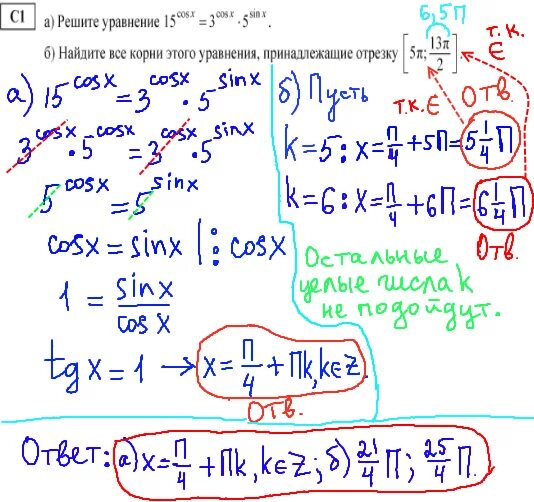 C1
а) Решите уравнение 15^cosx = 3^cosx · 5^sinx.
6,5П
б) Найдите все корни этого уравнения, принадлежащие отрезку [5π; 13π/2].
т.к. ∈
а) 15^cosx = 3^cosx · 5^sinx
3^cosx · 5^cosx = 3^cosx · 5^sinx
5^cosx = 5^sinx
cosx = sinx |: cosx
1 = sinx/cosx
tgx = 1 → x = П/4 + Пk, k∈Z
Отв.
б) Пусть
т.к. ∈
Отв.
k=5: x = П/4 + 5П = 5 1/4 П
k=6: x = П/4 + 6П = 6 1/4 П
Отв.
Остальные
целые числа k
не подойдут.
Ответ: а) x = П/4 + Пk, k∈Z; б) 21/4 П; 25/4 П.